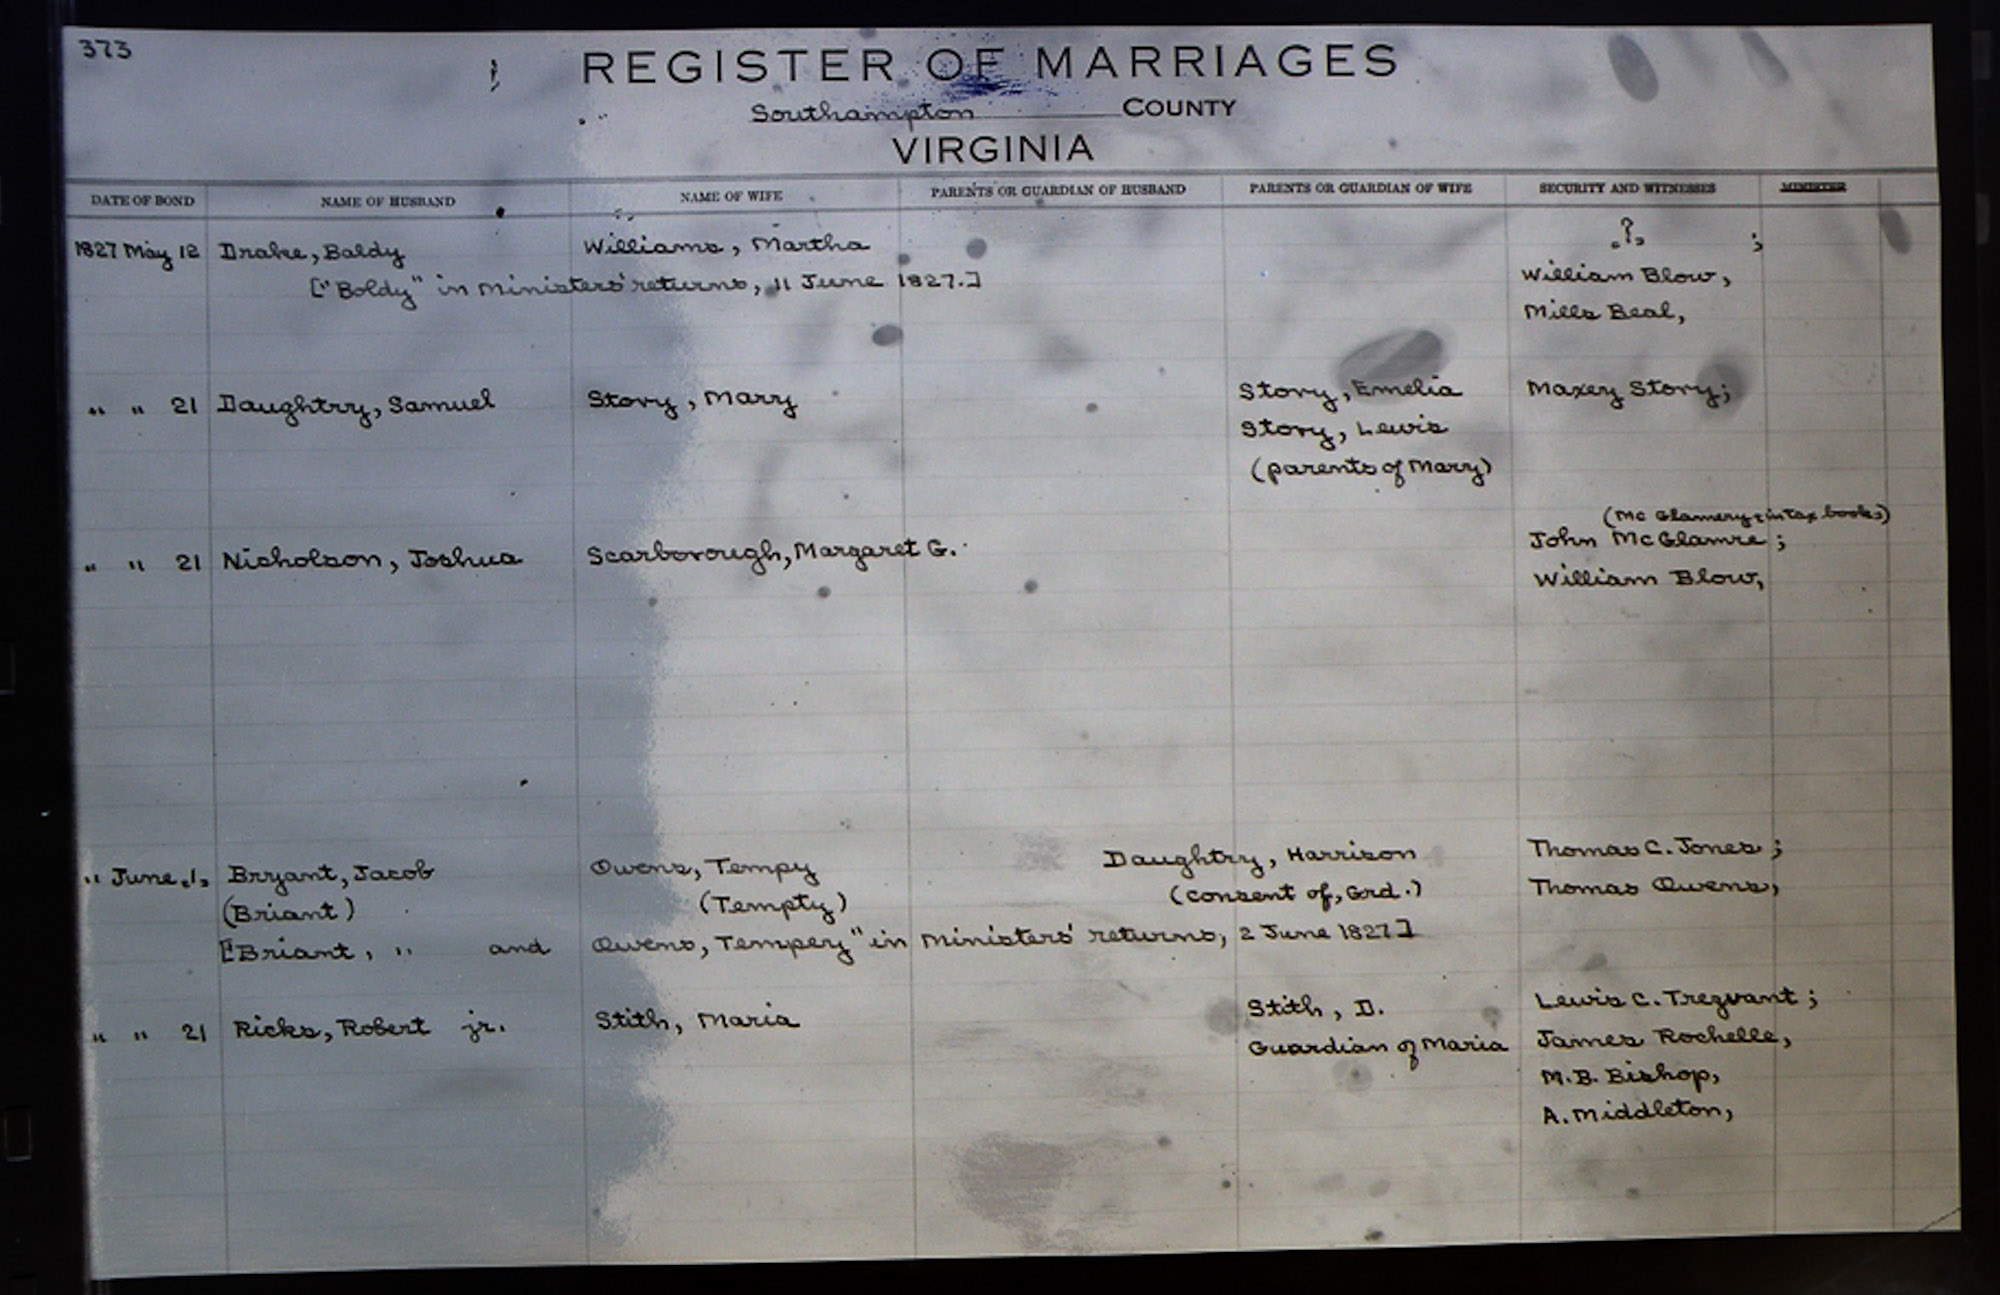 373
REGISTER OF MARRIAGES
Southampton COUNTY
VIRGINIA
DATE OF BOND NAME OF HUSBAND NAME OF WIFE PARENTS OR GUARDIAN OF HUSBAND PARENTS OR GUARDIAN OF WIFE SECURITY AND WITNESSES MINISTER
1827 May 12 Drake, Baldy Williams, Martha ? ;
["Boldy" in Ministers' returns, 11 June 1827.] William Blow,
Mills Beal,
" " 21 Daughtry, Samuel Story, Mary Story, Emelia Maxey Story;
Story, Lewis
(parents of Mary)
(McGlamery in tax books)
" " 21 Nicholson, Joshua Scarborough, Margaret G. John McGlamre;
William Blow,
" June 1, Bryant, Jacob Owens, Tempy Daughtry, Harrison Thomas C. Jones;
(Briant) (Tempty) (consent of, Grd.) Thomas Owens,
[Briant, " and Owens, Tempey" in Ministers' returns, 2 June 1827]
" " 21 Ricks, Robert jr. Stith, Maria Stith, D. Lewis C. Trezvant;
Guardian of Maria James Rochelle,
M. B. Bishop,
A. Middleton,